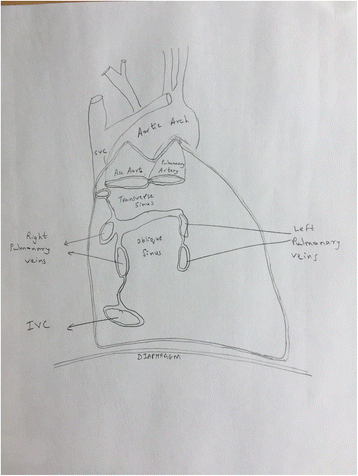 Aortic Arch
SVC
Asc Aorta
Pulmonary
Artery
Transverse
Sinus
Right
Pulmonary
veins
Oblique
Sinus
Left
Pulmonary
veins
IVC
DIAPHRAGM